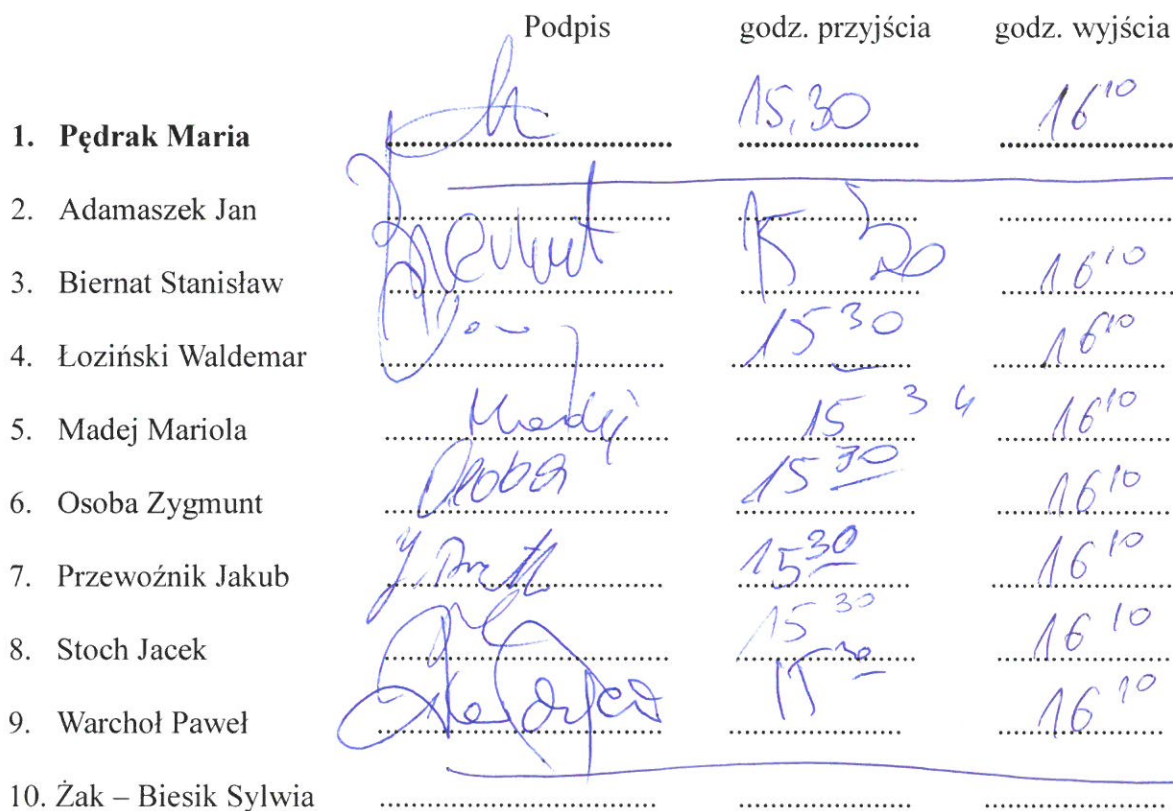 Podpis godz. przyjścia godz. wyjścia
1. Pędrak Maria 15,30 16 10
2. Adamaszek Jan
3. Biernat Stanisław Biernat 15 30 16 10
4. Łoziński Waldemar 15 30 16 10
5. Madej Mariola Madej 15 34 16 10
6. Osoba Zygmunt Osoba 15 30 16 10
7. Przewoźnik Jakub 15 30 16 10
8. Stoch Jacek 15 30 16 10
9. Warchoł Paweł 15 30 16 10
10. Żak – Biesik Sylwia